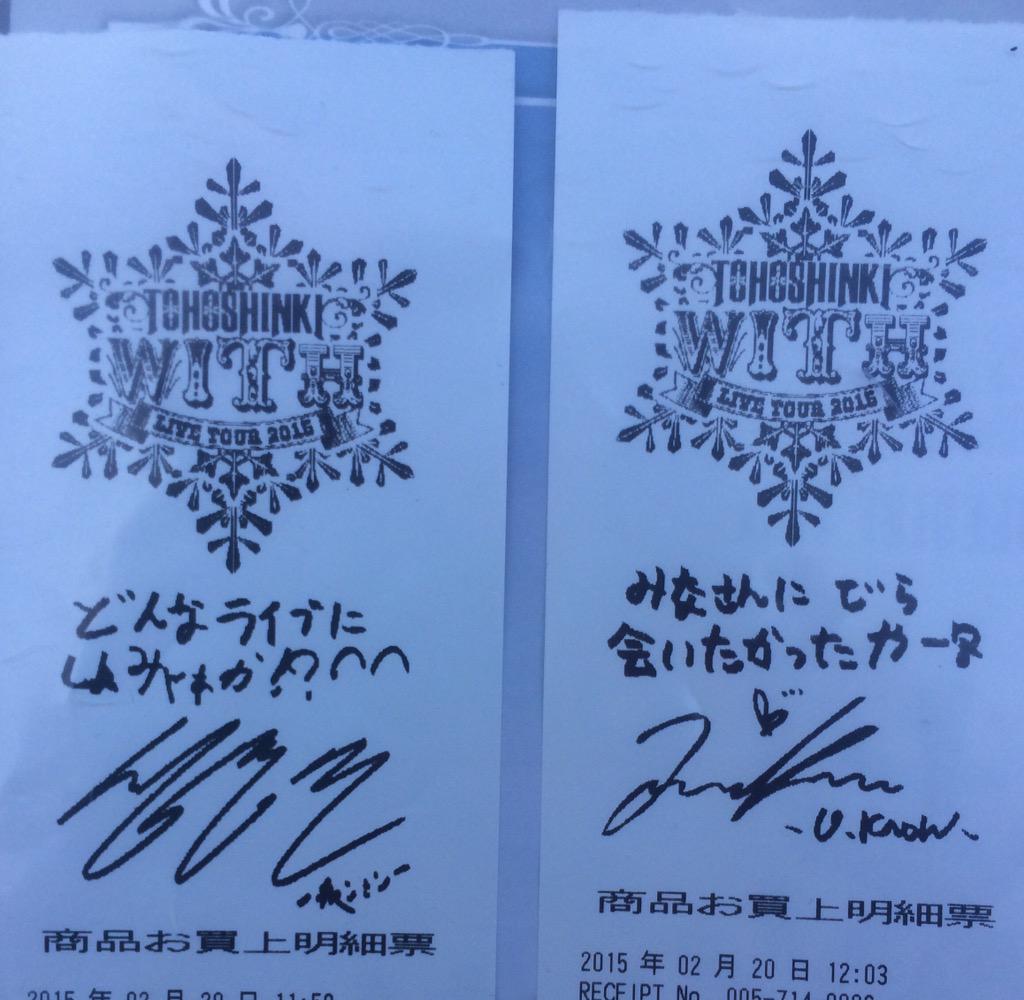 TOHOSHINKI
WITH
LIVE TOUR 2015
どんなライブに
しよみゃあか!?^^
商品お買上明細票
2015 年 02 月 20 日 11:59
TOHOSHINKI
WITH
LIVE TOUR 2015
みなさんに でら
会いたかったガーヌ
-U.Know-
商品お買上明細票
2015 年 02 月 20 日 12:03
RECEIPT No. 005-714